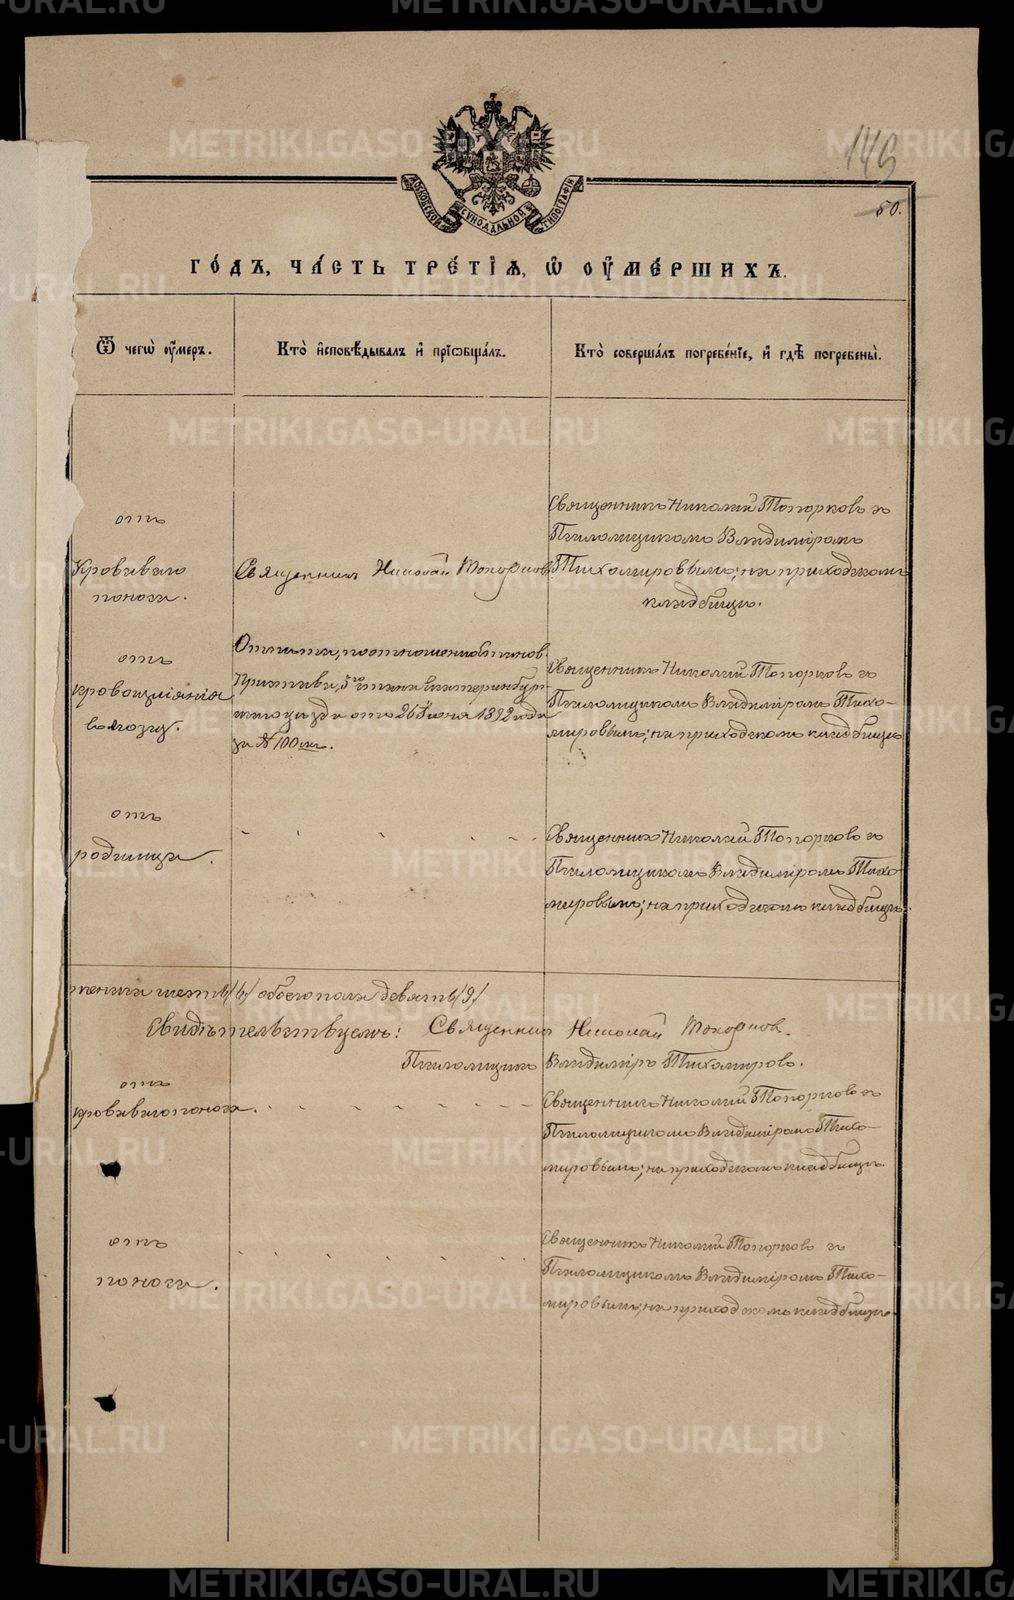 149
50.
МОСКОВСКОЙ СѴНОДАЛЬНОЙ ТИПОГРАФІИ
ГО́ДЪ, ЧА́СТЬ ТРЕ́ТІѦ, Ѽ ОУ҆МЕ́РШИХЪ.
Ѿ чегѡ̀ ᲂу҆́меръ.
Кто̀ и҆сповѣ́дывалъ и҆ прїѡбща́лъ.
Кто̀ соверша́лъ погребе́нїе, и҆ гдѣ̀ погребены̀.
отъ
Кроваваго
поноса.
Священникъ Николай Топорковъ
Священникъ Николай Топорковъ съ
Псаломщикомъ Владиміромъ
Тихомировымъ; на приходскомъ
кладбищѣ.
отъ
кровоизліянія
въ мозгъ.
по отношенію станов.
Пристава, 5го стана Екатеринбур-
скаго уѣзда отъ 26 Іюня 1892 года
за №
Священникъ Николай Топорковъ съ
Псаломщикомъ Владиміромъ Тихо-
мировымъ; на приходскомъ кладбищѣ
отъ
родимца.
Священникъ Николай Топорковъ съ
Псаломщикомъ Владиміромъ Тихо-
мировымъ; на приходскомъ кладбищѣ.
шесть /6/ обоего пола девять /9/
Свидѣтельствуемъ: Священникъ Николай Топорковъ.
Псаломщикъ Владиміръ Тихомировъ.
отъ
кроваваго поноса.
Священникъ Николай Топорковъ съ
Псаломщикомъ Владиміромъ Тихо-
мировымъ; на приходскомъ кладбищѣ
отъ
поноса.
Священникъ Николай Топорковъ съ
Псаломщикомъ Владиміромъ Тихо-
мировымъ; на приходскомъ кладбищѣ
METRIKI.GASO-URAL.RU